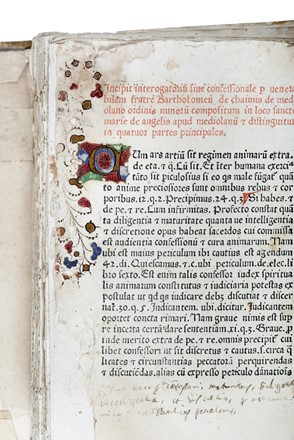 Incipit interrogatoriū siue confessionale p venera
bilem fratrē Bartholomeū de chaimis de medi
olano ordinis minorū compositum in loco sancte
marie de angelis apud mediolanū et distinguitur
in quatuor partes principales.
CUm ars artiū sit regimen animarū extra.
de eta. et q̄. Cū sit. Et iter humana exerci
tia sit piculosius si eo qs male fugat̄ quā
to anime preciosiores sunt omnibus rebus et cor
poribus. 12. q. 2. Precipimus. 24. q. 3. Si habes. et
de pe. et re. Cum infirmitas. Profecto constat quā
ta diligentia et maturitate quanta ve intelligentia
et discretione opus habeat sacerdos cui commissa
est audientia confessionū et cura animarum. Nam
vbi est maius periculum ibi cautius est agendum
42. di. Quiescamus. et. vbi periculum. de. elec. li
bro sexto. Est enim talis confessor iudex spiritua
lis animarum constitutus et iudiciaria potestas ex
postulat vt qd̄ iudicare debz discutiat et discer
nat. 30. q. 5. Iudicantem. vbi. dicitur. Iudicantem
oportet cuncta rimari. Nam graue nimis est sup
re incerta certā dare sententiam. xi. q. 3. Graue. p̄
inde merito extra de pe. et re. omnis precipit̄ cui
libet confessori vt sit discretus et cautus. s. circa q̄
litates et circumstantias peccatorū perquirendas et
discutiēdas. alias cū discretio pastoralis expositū